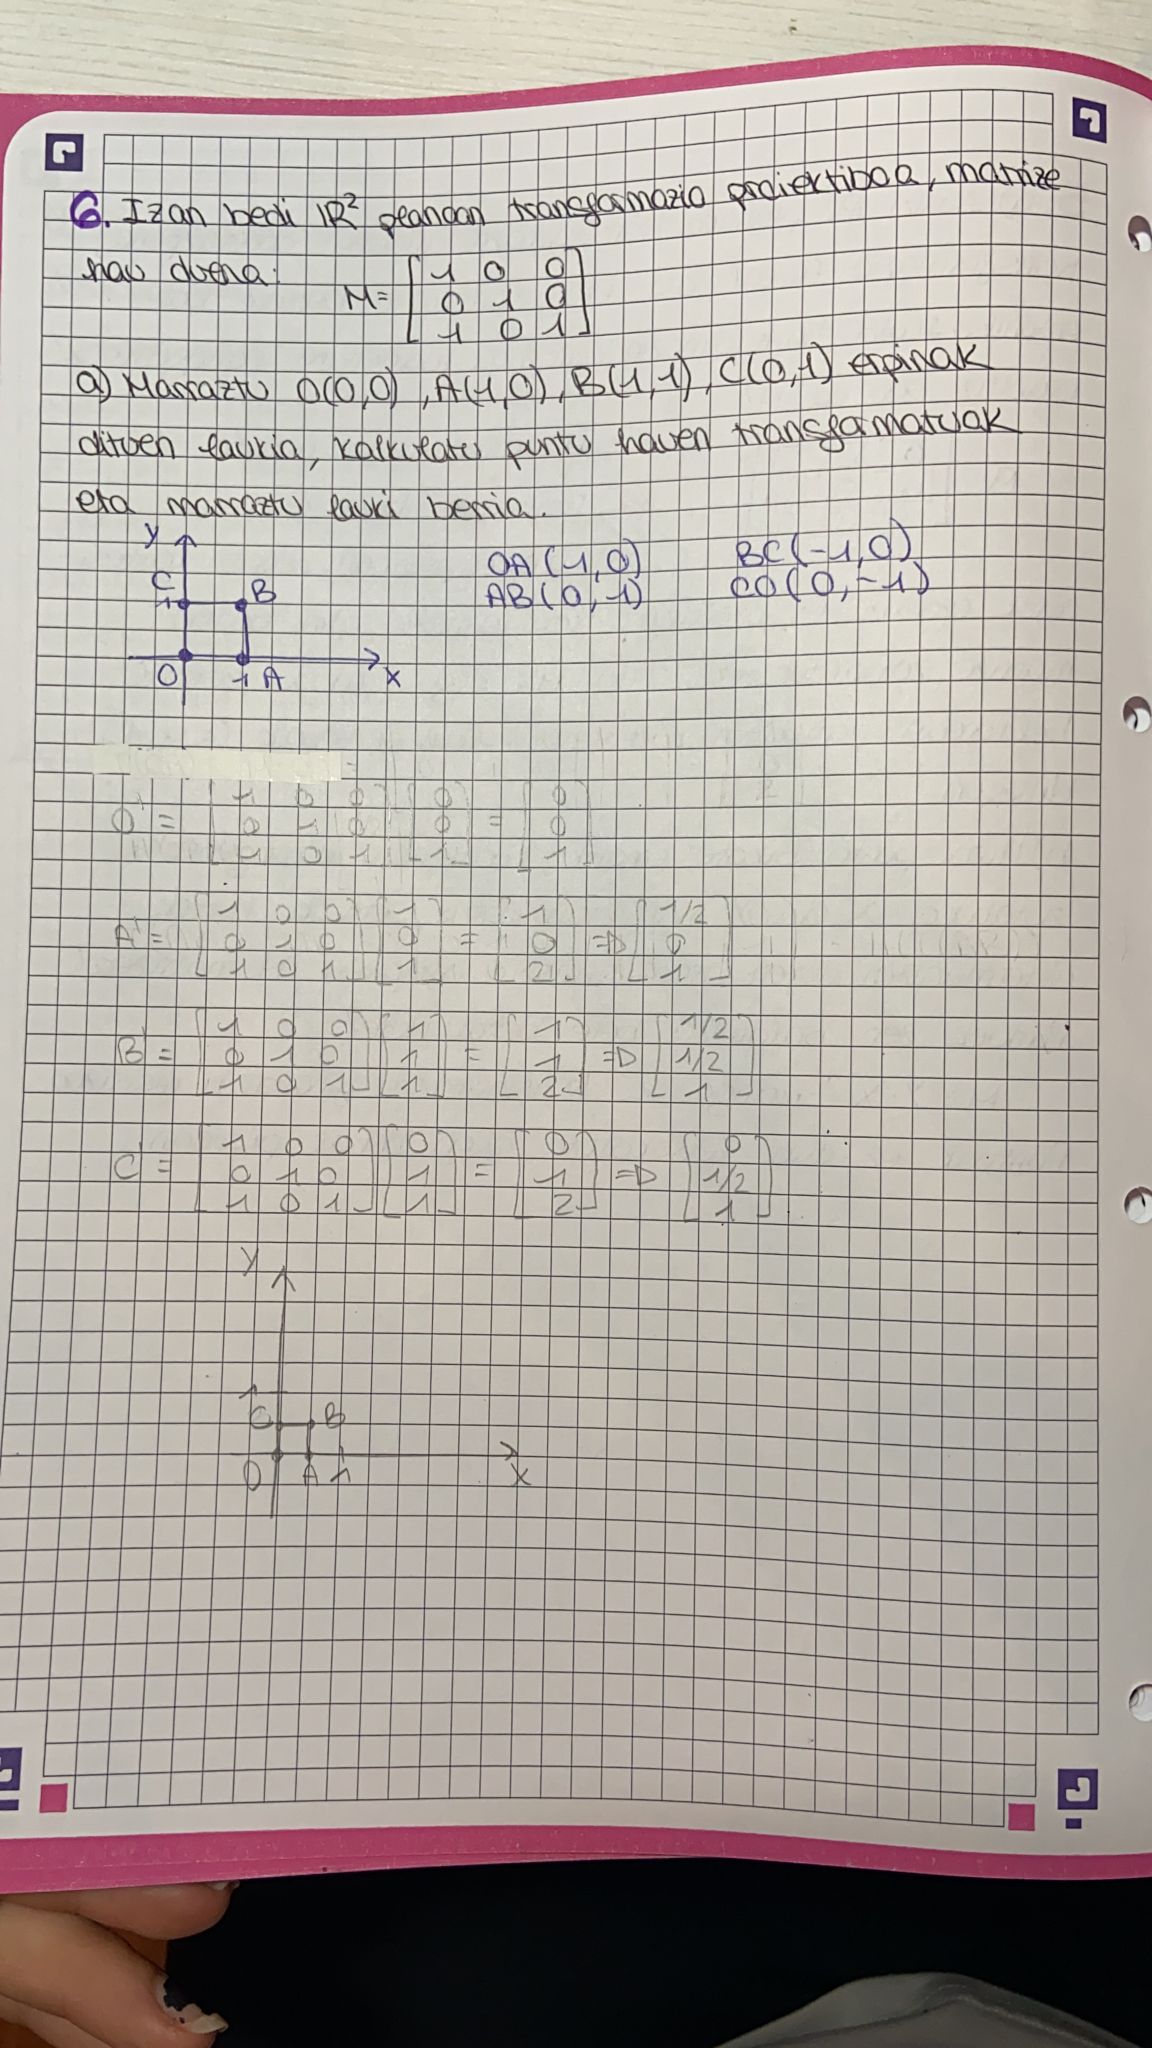 6. Izan bedi IR² planoan transformazio proiektiboa, matrize
hau duena: M= [1 0 0
0 1 0
1 0 1]
a) Marraztu O(0,0), A(1,0), B(1,1), C(0,1) erpinak
dituen laukia, kalkulatu puntu hauen transformatuak
eta marraztu lauki berria.
y
C B
1
O 1 A x
OA(1,0) BC(-1,0)
AB(0,1) CO(0,-1)
O' = [1 0 0; 0 1 0; 1 0 1] [0; 0; 1] = [0; 0; 1]
A' = [1 0 0; 0 1 0; 1 0 1] [1; 0; 1] = [1; 0; 2] => [1/2; 0; 1]
B' = [1 0 0; 0 1 0; 1 0 1] [1; 1; 1] = [1; 1; 2] => [1/2; 1/2; 1]
C' = [1 0 0; 0 1 0; 1 0 1] [0; 1; 1] = [0; 1; 2] => [0; 1/2; 1]
y
1
C B
O A 1 x